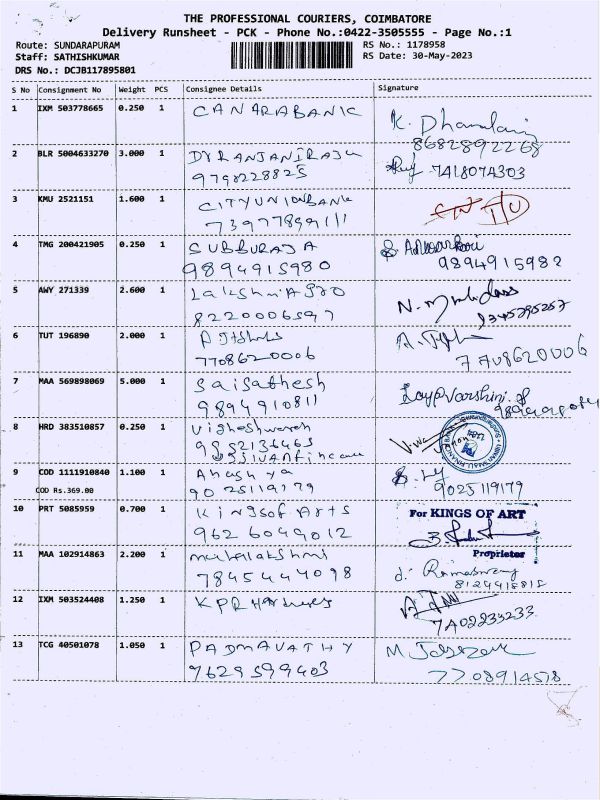 THE PROFESSIONAL COURIERS, COIMBATORE
Delivery Runsheet - PCK - Phone No.:0422-3505555 - Page No.:1
Route: SUNDARAPURAM
RS No.: 1178958
Staff: SATHISHKUMAR
RS Date: 30-May-2023
DRS No.: DCJB117895801
S No Consignment No Weight PCS Consignee Details Signature
1 IXM 503778665 0.250 1 CANARABANK
8682892268
2 BLR 5004633270 3.000 1 DYRANJANIRAJU
9798228825
7418074303
3 KMU 2521151 1.600 1 CITYUNIONBANK
7397789911
4 TMG 200421905 0.250 1 SUBBURAJA
9894915980
9894915982
5 AWY 271339 2.600 1 Lakshmi Agro
8220006597
9345295257
6 TUT 196890 2.000 1
7708620006
7708620006
7 MAA 569898069 5.000 1 Saisathesh
9894910811
8 HRD 383510857 0.250 1 Vigheshwaran
9 COD 1111910840 1.100 1
COD Rs.369.00
9025119179
9025119179
10 PRT 5085959 0.700 1 Kingsof Arts
9626049012
For KINGS OF ART
Proprietor
11 MAA 102914863 2.200 1 mahalakshmi
7845444098
8124415815
12 IXM 503524408 1.250 1 KPR Hardwares
7402233233
13 TCG 40501078 1.050 1 PADMAVATHY
9629599403
7708914518